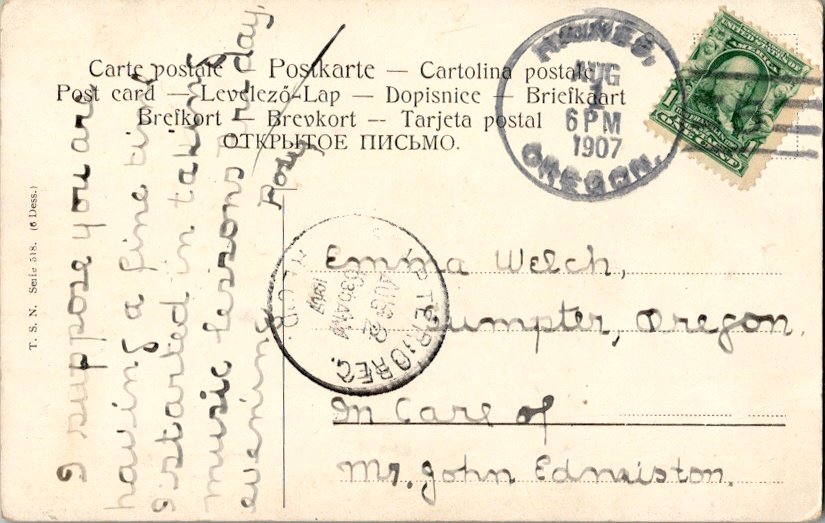 Carte postale — Postkarte — Cartolina postale
Post card — Levelező-Lap — Dopisnice — Briefkaart
Brefkort — Brevkort — Tarjeta postal
ОТКРЫТОЕ ПИСЬМО.
HAINES,
AUG
1
6 PM
1907
OREGON.
T. S. N. Serie 518. (6 Dess.)
I suppose you are
having a fine time
I started in taking
music lessons one day,
evening
Posy
AUG 2
630 AM
1907
REC.
Emma Welch,
Sumpter, Oregon.
In Care of
Mr. John Edmiston.